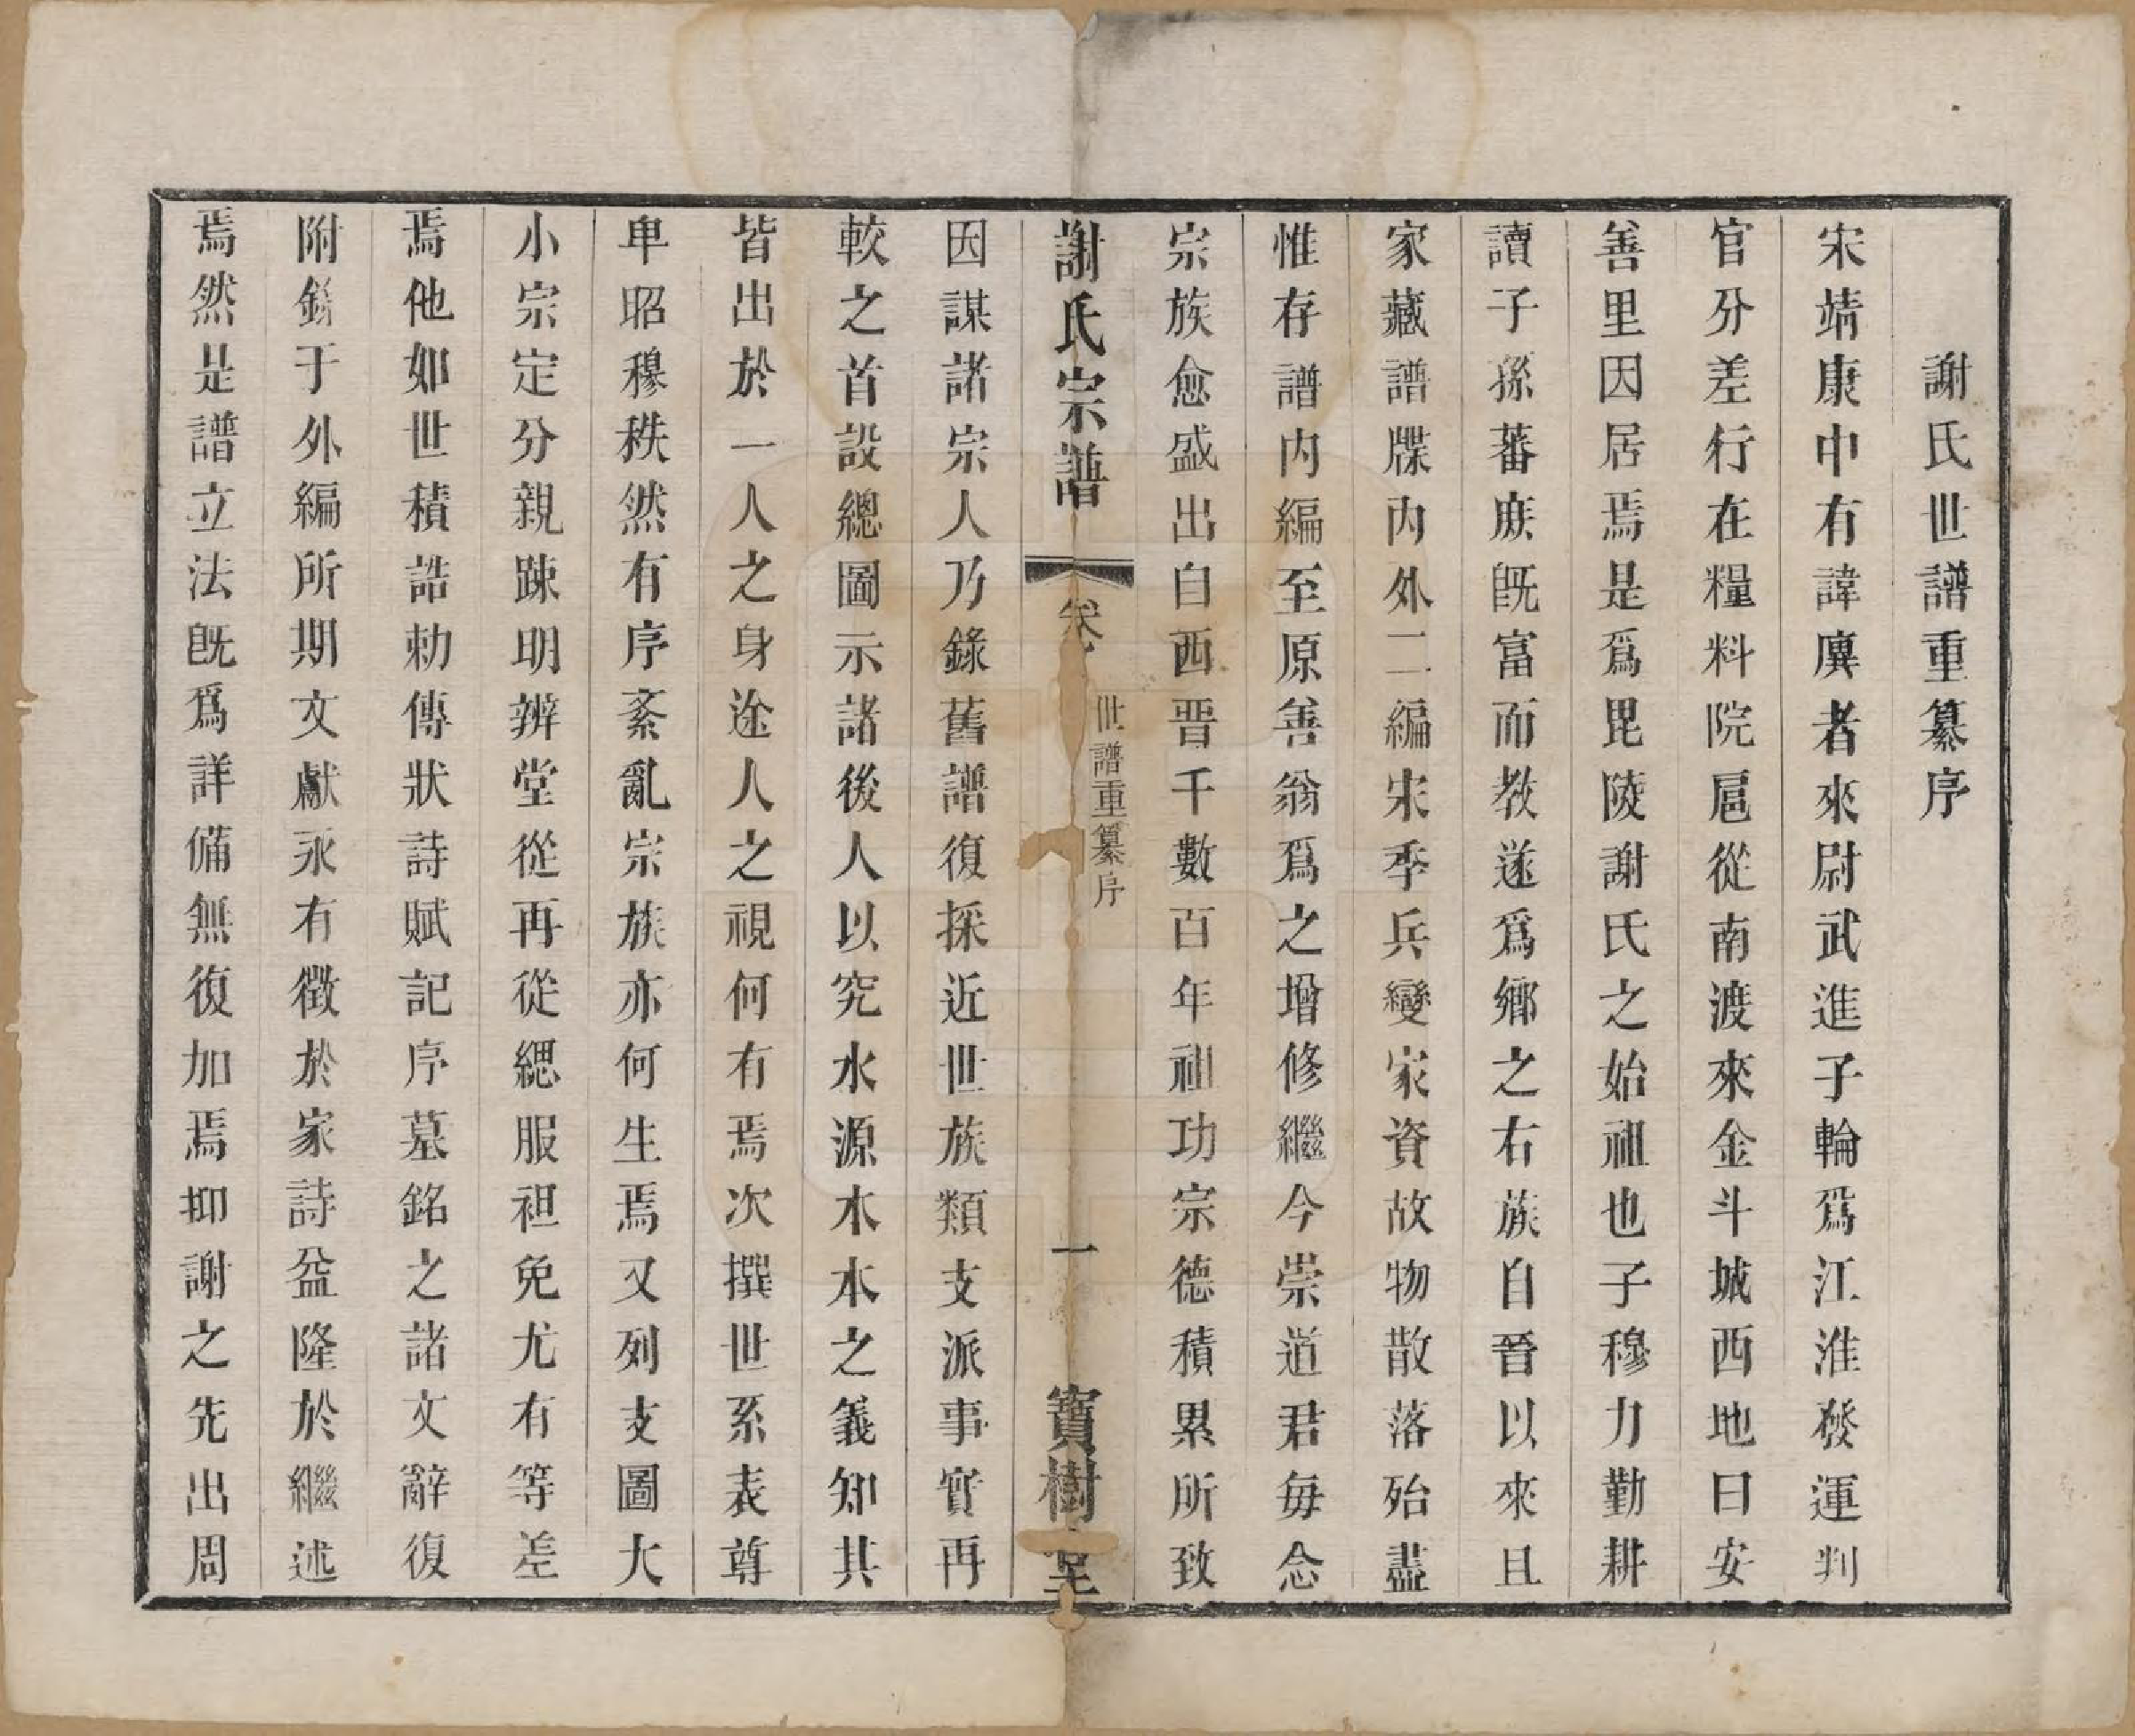 謝氏世譜重纂序
宋靖康中有諱廙者來尉武進子輪爲江淮發運判
官分差行在糧料院扈從南渡來金斗城西地曰安
善里因居焉是爲毘陵謝氏之始祖也子穆力勤耕
讀子孫蕃庶既富而教遂爲鄉之右族自晉以來且
家藏譜牒內外二編宋季兵變家資故物散落殆盡
惟存譜內編至原善翁爲之增修繼今崇道君每念
宗族愈盛出自西晉千數百年祖功宗德積累所致
謝氏宗譜
卷
世譜重纂序
一
寶樹堂
因謀諸宗人乃錄舊譜復採近世族類支派事實再
較之首設總圖示諸後人以究水源木本之義知其
皆出於一人之身途人之視何有焉次撰世系表尊
卑昭穆秩然有序紊亂宗族亦何生焉又列支圖大
小宗定分親踈明辨堂從再從緦服袒免尤有等差
焉他如世積誥勅傳狀詩賦記序墓銘之諸文辭復
附錄于外編所期文獻永有徵於家詩益隆於繼述
焉然是譜立法既爲詳備無復加焉抑謝之先出周